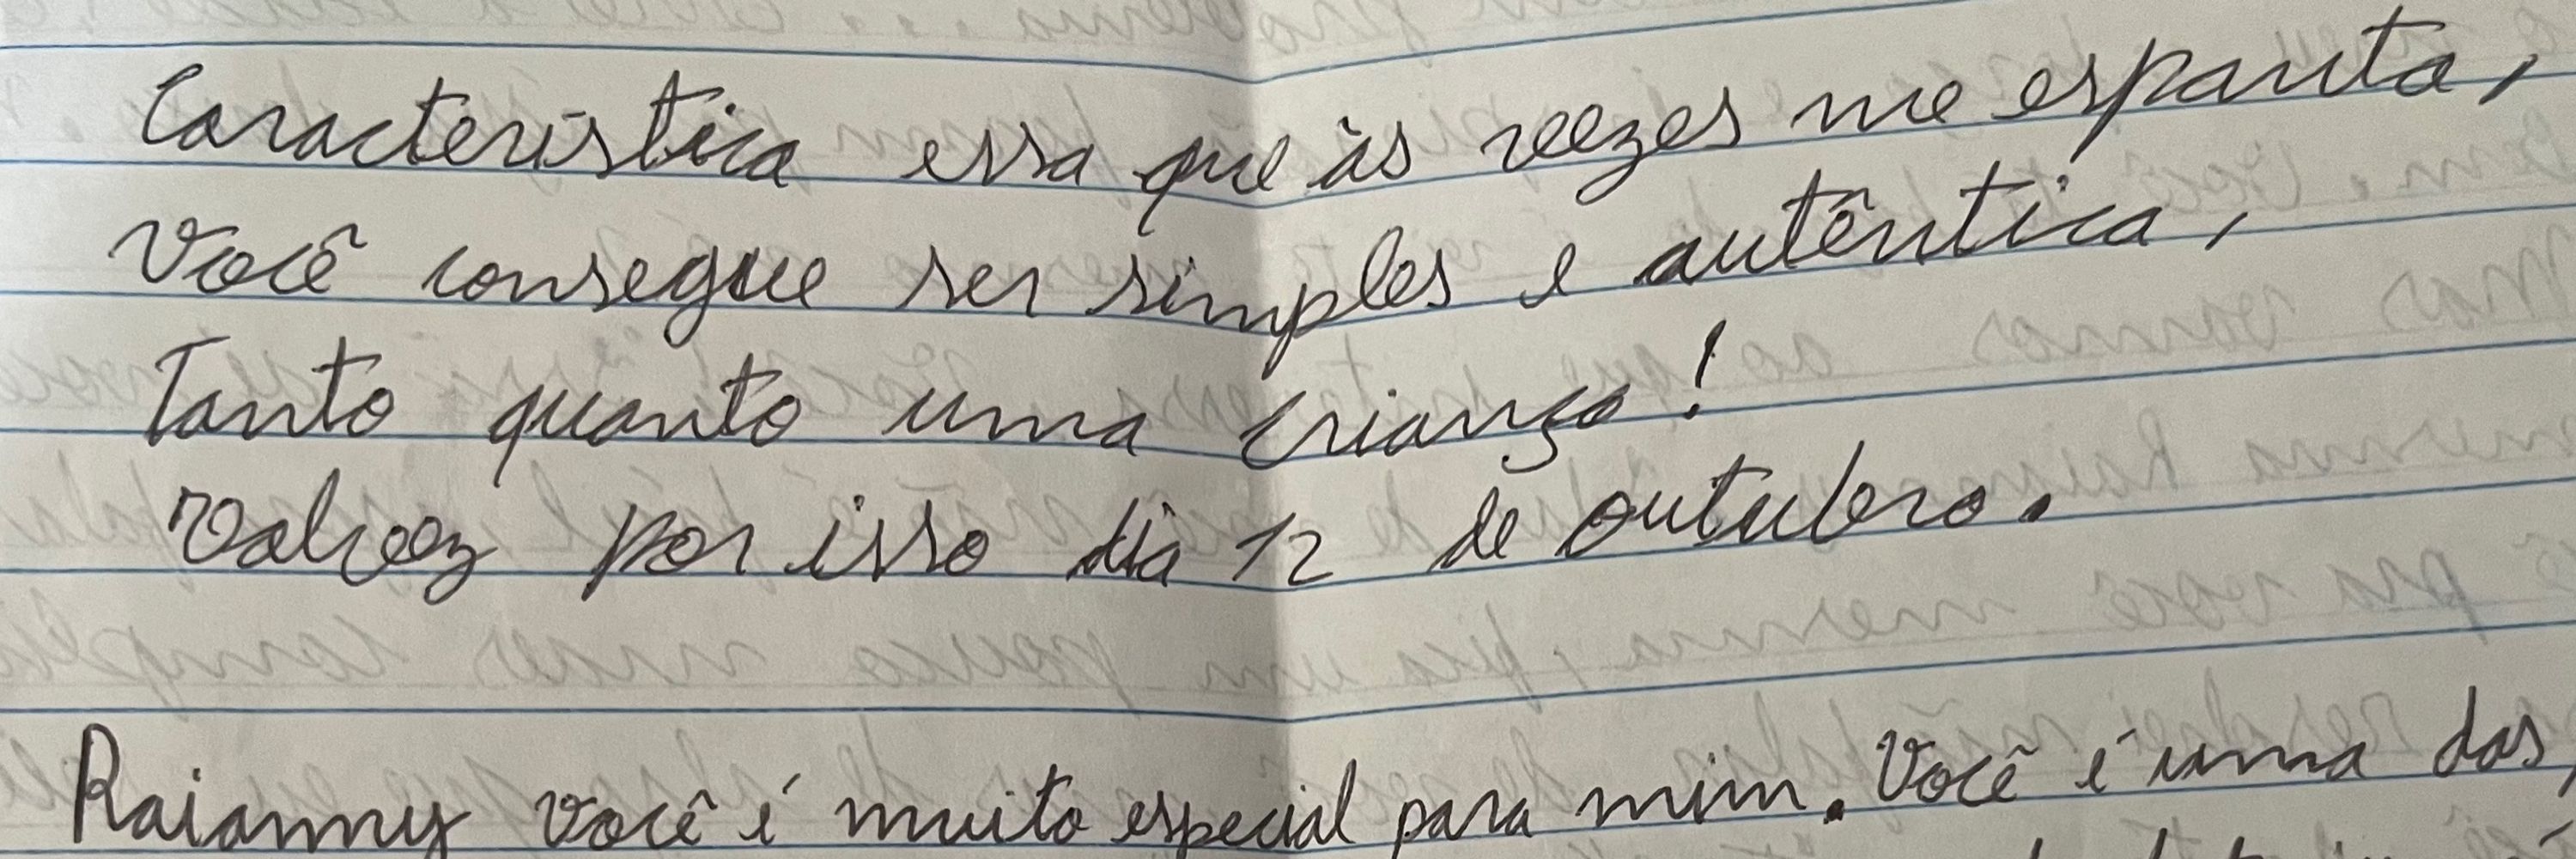 Característica essa que às veezes me espanta,
Você consegue ser simples e autêntica,
Tanto quanto uma criança!
por isso dia 12 de outubro.
Raianny você é muito especial para mim. Você é uma das